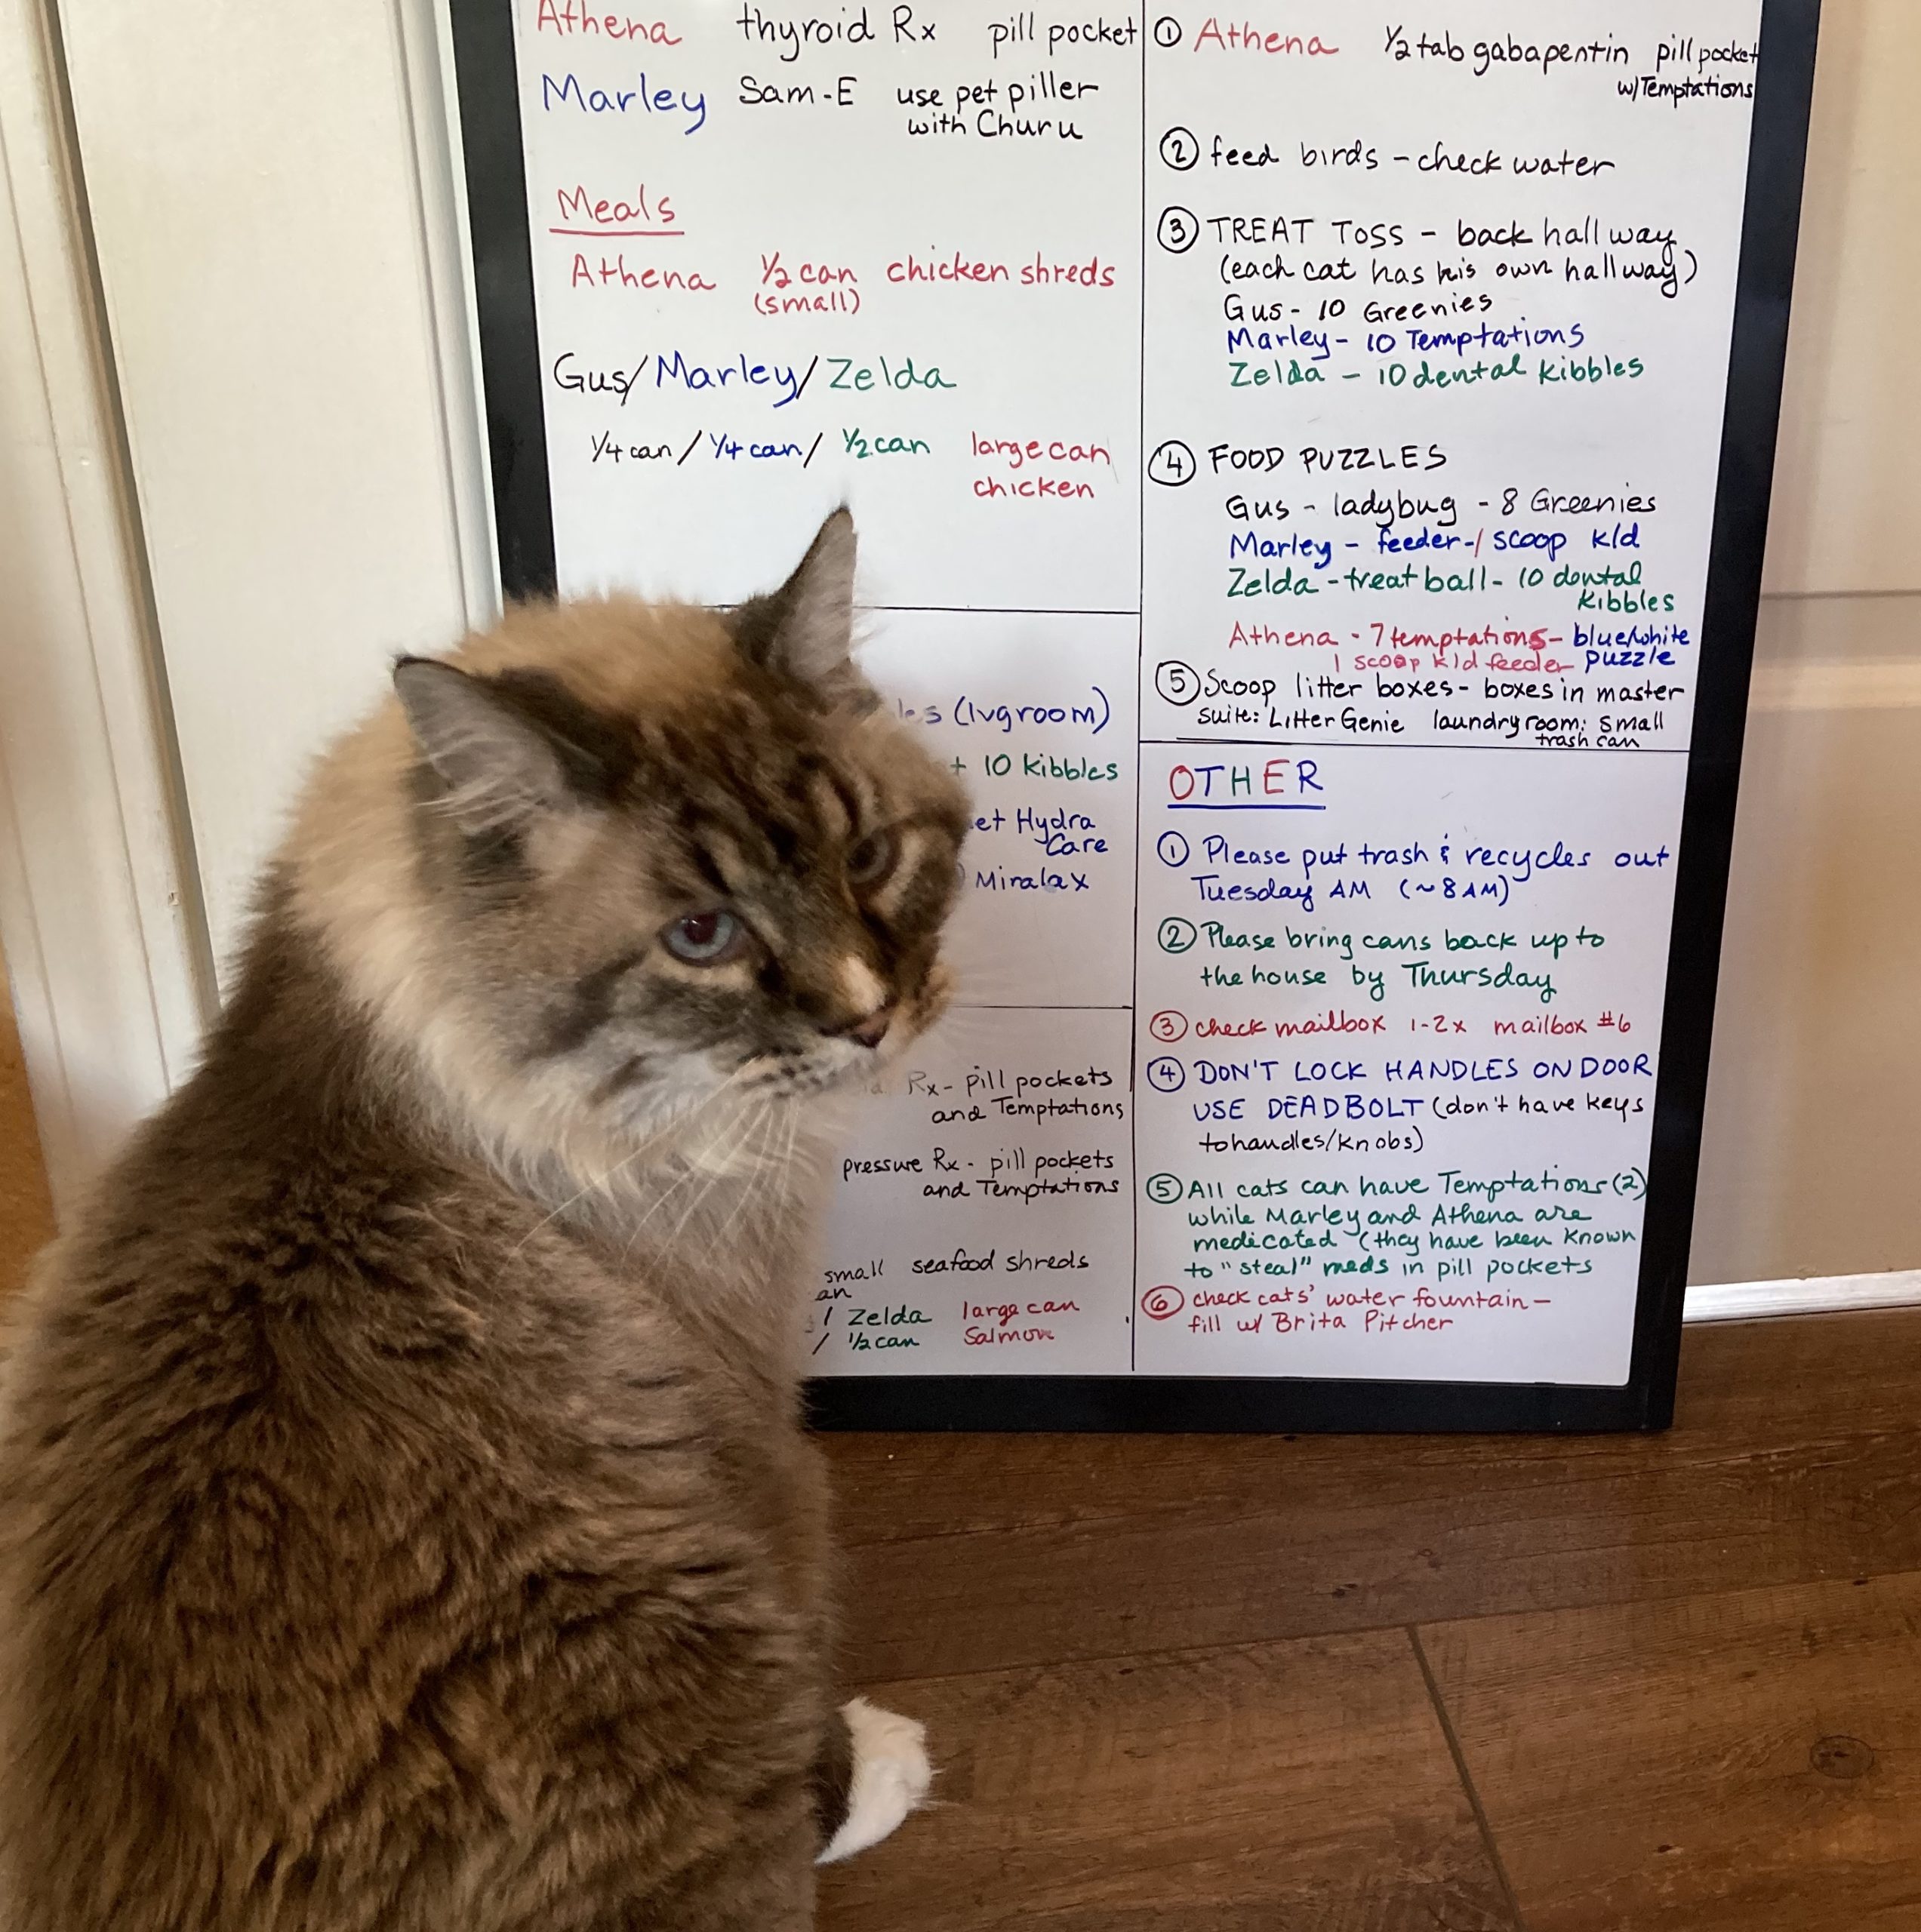 Athena thyroid Rx pill pocket
Marley Sam-E use pet piller
with Churu
Meals
Athena 1/2 can chicken shreds
(small)
Gus/Marley/Zelda
1/4 can / 1/4 can / 1/2 can large can
chicken
(lvgroom)
10 kibbles
Hydra
Care
Miralax
Rx - pill pockets
and Temptations
pressure Rx - pill pockets
and Temptations
small seafood shreds
/ Zelda large can
/ 1/2 can Salmon
① Athena 1/2 tab gabapentin pill pocket
w/Temptations
② feed birds - check water
③ TREAT TOSS - back hallway
(each cat has his own hallway)
Gus - 10 Greenies
Marley - 10 Temptations
Zelda - 10 dental kibbles
④ FOOD PUZZLES
Gus - ladybug - 8 Greenies
Marley - feeder - 1 scoop k/d
Zelda - treat ball - 10 dental
kibbles
Athena - 7 temptations - blue/white
1 scoop k/d feeder puzzle
⑤ Scoop litter boxes - boxes in master
suite: Litter Genie laundry room: small
trash can
OTHER
① Please put trash & recycles out
Tuesday AM (~8 AM)
② Please bring cans back up to
the house by Thursday
③ check mailbox 1-2x mailbox #6
④ DON'T LOCK HANDLES ON DOOR
USE DEADBOLT (don't have keys
to handles/knobs)
⑤ All cats can have Temptations (2)
while Marley and Athena are
medicated (they have been known
to "steal" meds in pill pockets
⑥ check cats' water fountain -
fill w/ Brita Pitcher